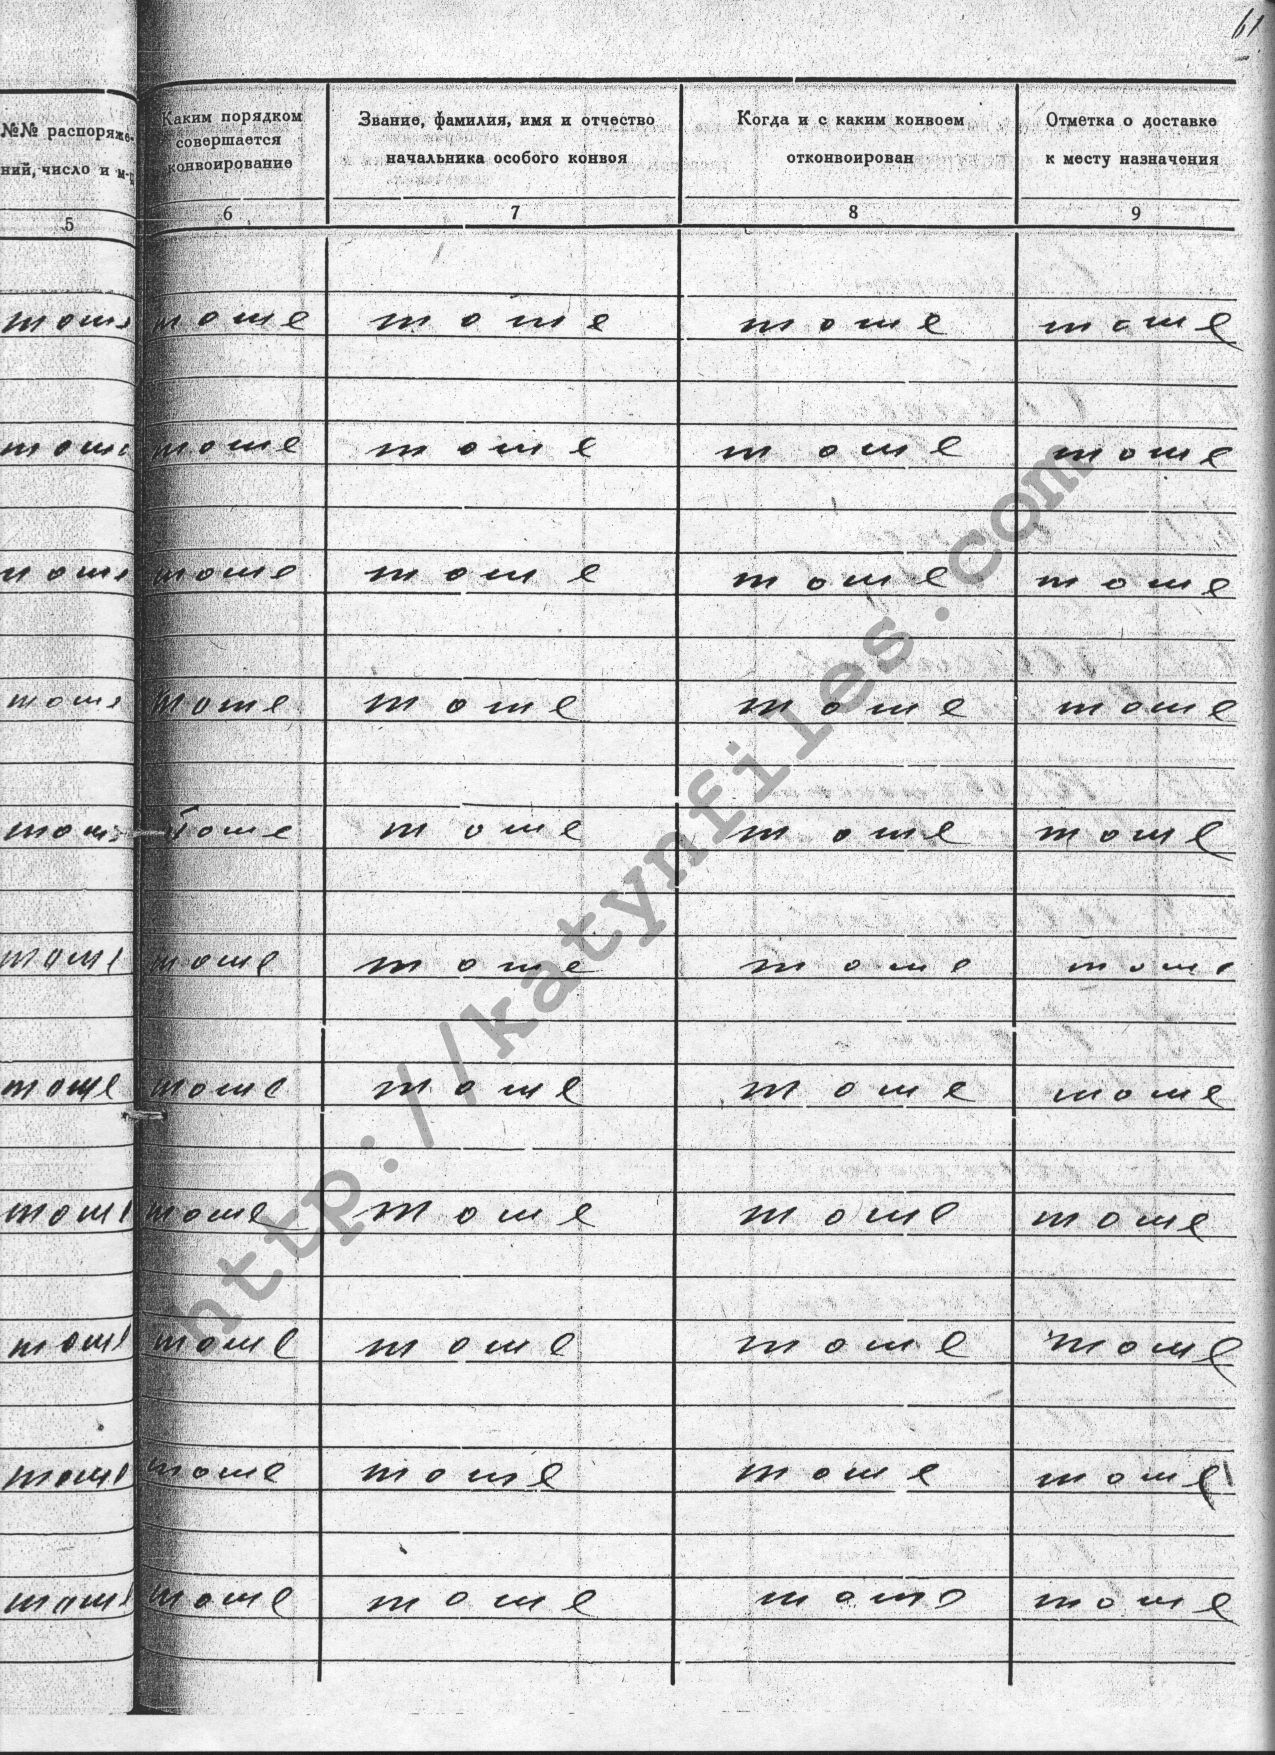 61
№№ распоряже-
ний, число и м-ц
Каким порядком
совершается
конвоирование
Звание, фамилия, имя и отчество
начальника особого конвоя
Когда и с каким конвоем
отконвоирован
Отметка о доставке
к месту назначения
5 6 7 8 9
тоже тоже тоже тоже тоже
тоже тоже тоже тоже тоже
тоже тоже тоже тоже тоже
тоже тоже тоже тоже тоже
тоже тоже тоже тоже тоже
тоже тоже тоже тоже тоже
тоже тоже тоже тоже тоже
тоже тоже тоже тоже тоже
тоже тоже тоже тоже тоже
тоже тоже тоже тоже тоже
тоже тоже тоже тоже тоже
http://katynfiles.com